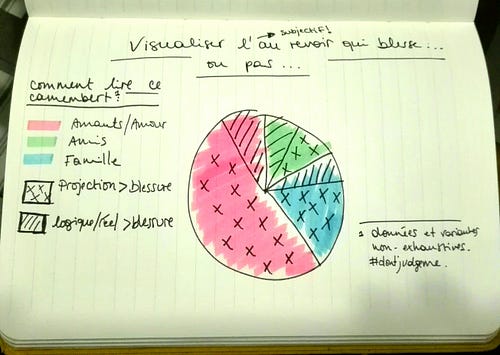 subjectif!
Visualiser l'au revoir qui blesse...
ou pas...
comment lire ce
camembert?
Amants/Amour
Amis
Famille
Projection > blessure
logique/réel > blessure
données et variantes
non-exhaustives.
#dontjudgeme.